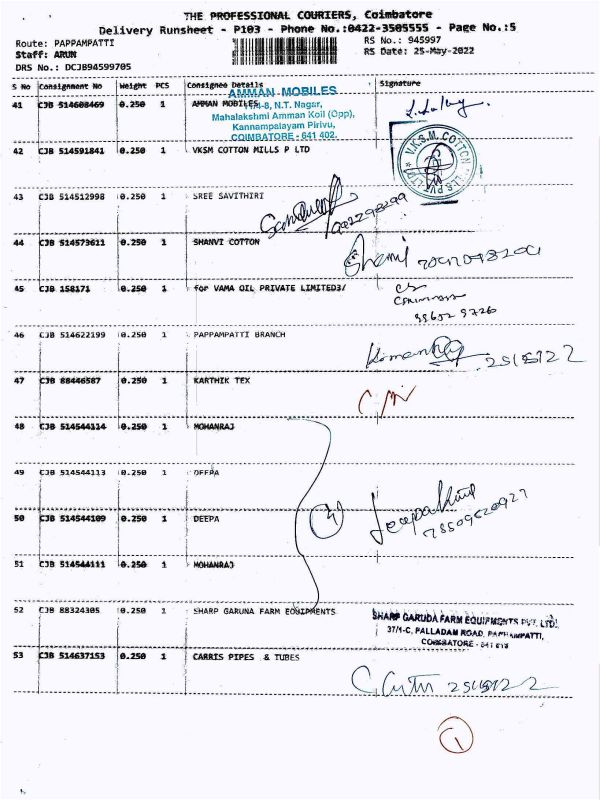 THE PROFESSIONAL COURIERS, Coimbatore
Delivery Runsheet - P103 - Phone No.:0422-3505555 - Page No.:5
Route: PAPPAMPATTI RS No.: 945997
Staff: ARUN RS Date: 25-May-2022
DRS No.: DCJB94599705
S No Consignment No Weight PCS Consignee Details Signature
AMMAN MOBILES
41 CJB 514608469 0.250 1 AMMAN MOBILES
N.T. Nagar,
Mahalakshmi Amman Koil (Opp),
Kannampalayam Pirivu,
COIMBATORE - 641 402.
42 CJB 514591841 0.250 1 VKSM COTTON MILLS P LTD
V.K.S.M. COTTON MILLS PVT LTD
43 CJB 514512998 0.250 1 SREE SAVITHIRI
44 CJB 514573611 0.250 1 SHANVI COTTON
45 CJB 158171 0.250 1 for VAMA OIL PRIVATE LIMITED3/
46 CJB 514622199 0.250 1 PAPPAMPATTI BRANCH
25/5/22
47 CJB 88446587 0.250 1 KARTHIK TEX
48 CJB 514544114 0.250 1 MOHANRAJ
49 CJB 514544113 0.250 1 DEEPA
50 CJB 514544109 0.250 1 DEEPA
4
51 CJB 514544111 0.250 1 MOHANRAJ
52 CJB 88324305 0.250 1 SHARP GARUNA FARM EQUIPMENTS
SHARP GARUDA FARM EQUIPMENTS PVT. LTD.
37/1-C, PALLADAM ROAD, PAPPAMPATTI,
COIMBATORE - 641 016
53 CJB 514637153 0.250 1 CARRIS PIPES & TUBES
25/5/22
1